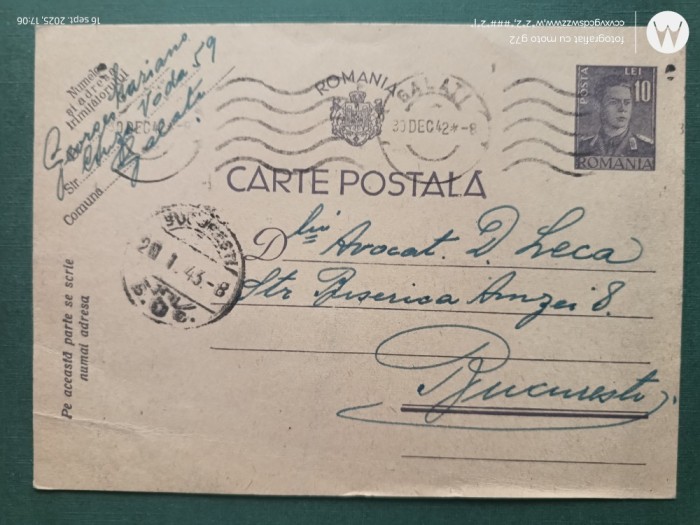 16 sept. 2025, 17:06
ccvxvgcdswzzwww,w,"2,"2,"###,"2,"[
fotografiat cu moto g72
W
Numele
și adresa
trimițătorului
Georges Mariano
Str. Vodă 59
Comuna Galati
ROMANIA
GALATI
30 DEC 42 - 8
POSTA LEI
10
ROMÂNIA
CARTE POSTALĂ
BUCUREȘTI
20 1. 43 - 8
Dlui Avocat. D. Leca
Str Biserica Amzei 8.
București.
Pe această parte se scrie
numai adresa